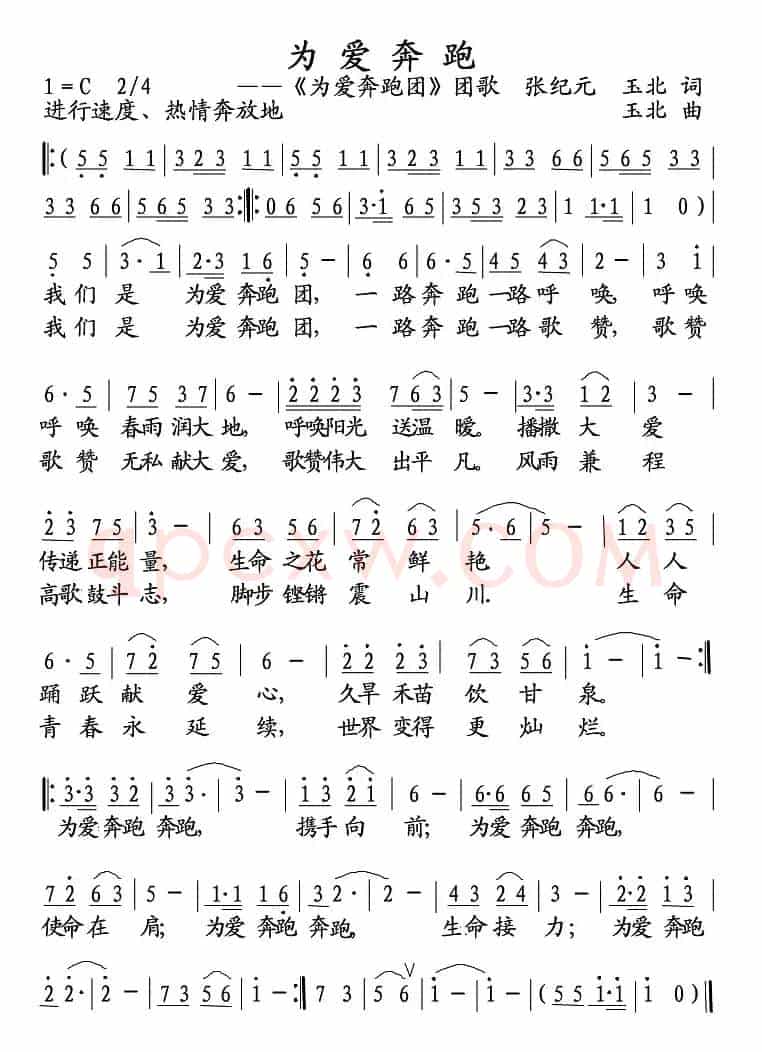 为爱奔跑
1=C 2/4 ——《为爱奔跑团》团歌 张纪元 玉北 词
进行速度、热情奔放地 玉北 曲
‖:(5 5 1 1 | 3 2 3 1 1 | 5 5 1 1 | 3 2 3 1 1 | 3 3 6 6 | 5 6 5 3 3 |
3 3 6 6 | 5 6 5 3 3 :‖: 0 6 5 6 | 3·1 6 5 | 3 5 3 2 3 | 1 1·1 | 1 0 ) |
5 5 | 3· 1 | 2·3 1 6 | 5 – | 6 6 | 6· 5 | 4 5 4 3 | 2 – | 3 1 |
我们是 为爱奔跑团, 一路奔跑一路呼唤, 呼唤
我们是 为爱奔跑团, 一路奔跑一路歌赞, 歌赞
6· 5 | 7 5 3 7 | 6 – | 2 2 2 3 | 7 6 3 | 5 – | 3·3 1 2 | 3 – |
呼唤 春雨润大地, 呼唤阳光 送温暖。播撒大爱
歌赞 无私献大爱, 歌赞伟大 出平凡。风雨兼程
2 3 7 5 | 3 – | 6 3 5 6 | 7 2 6 3 | 5· 6 | 5 – | 1 2 3 5 |
传递正能量, 生命之花常鲜艳 人人
qpcxw.com
高歌鼓斗志, 脚步铿锵震山川. 生命
6· 5 | 7 2 7 5 | 6 – | 2 2 2 2 | 7 3 5 6 | 1 – | 1 – :‖
踊跃献爱心, 久旱禾苗饮甘泉。
青春永延续, 世界变得更灿烂。
‖: 3·3 3 2 | 3 3· | 3 – | 1 3 2 1 | 6 – | 6·6 6 5 | 6 6· | 6 – |
为爱奔跑奔跑, 携手向前; 为爱奔跑奔跑,
7 2 6 3 | 5 – | 1·1 1 6 | 3 2· | 2 – | 4 3 2 4 | 3 – | 2·2 1 3 |
使命在肩; 为爱奔跑奔跑, 生命接力; 为爱奔跑
2 2· | 2 – | 7 3 5 6 | 1 – :‖ 7 3 | 5 6 ∨ | 1 – | 1 – | ( 5 5 1·1 | 1 0 ) ‖